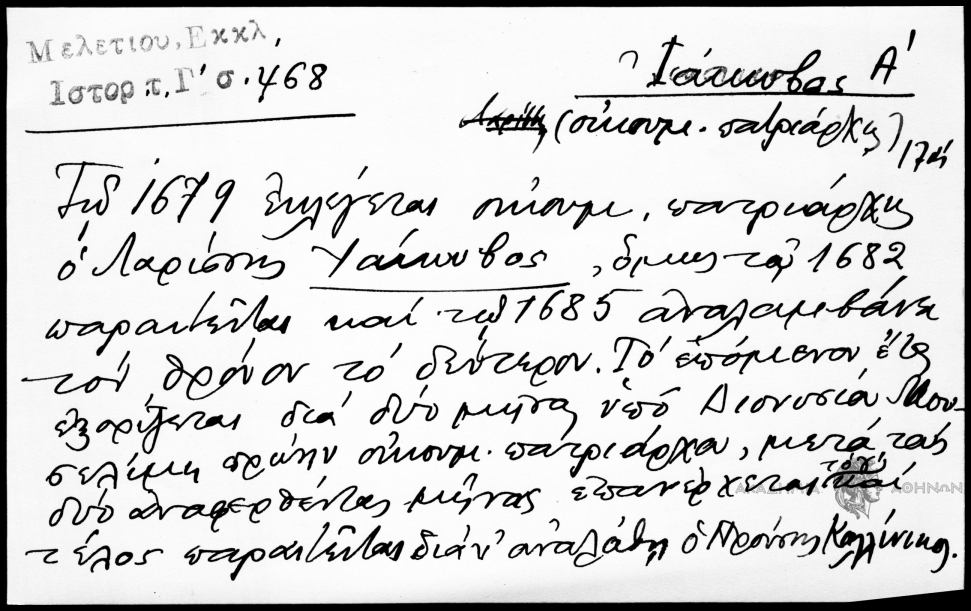 Μελετιου, Εκκλ,
Ιστορ. τ. Γ' σ. 468
Ἰάκωβος Α'
(οἰκουμ. πατριάρχης) 17ος
Τῷ 1679 ἐκλέγεται οἰκουμ. πατριάρχης
ὁ Λαρίσσης Ἰάκωβος, ὅμως τῷ 1682
παραιτεῖται καί τῷ 1685 ἀναλαμβάνει
τόν θρόνον τό δεύτερον. Τό ἑπόμενον ἔτος
ἐξορίζεται διά δύο μῆνας ὑπό Διονυσίου Μου-
σελίμη πρώην οἰκουμ. πατριάρχου, μετά τούς
δύο ἀναφερθέντας μῆνας ἐπανέρχεται καί
τέλος παραιτεῖται διά ν' ἀναλάβῃ ὁ Προύσης Καλλίνικος.
ΑΚΑΔΗΜΙΑ ΑΘΗΝΩΝ